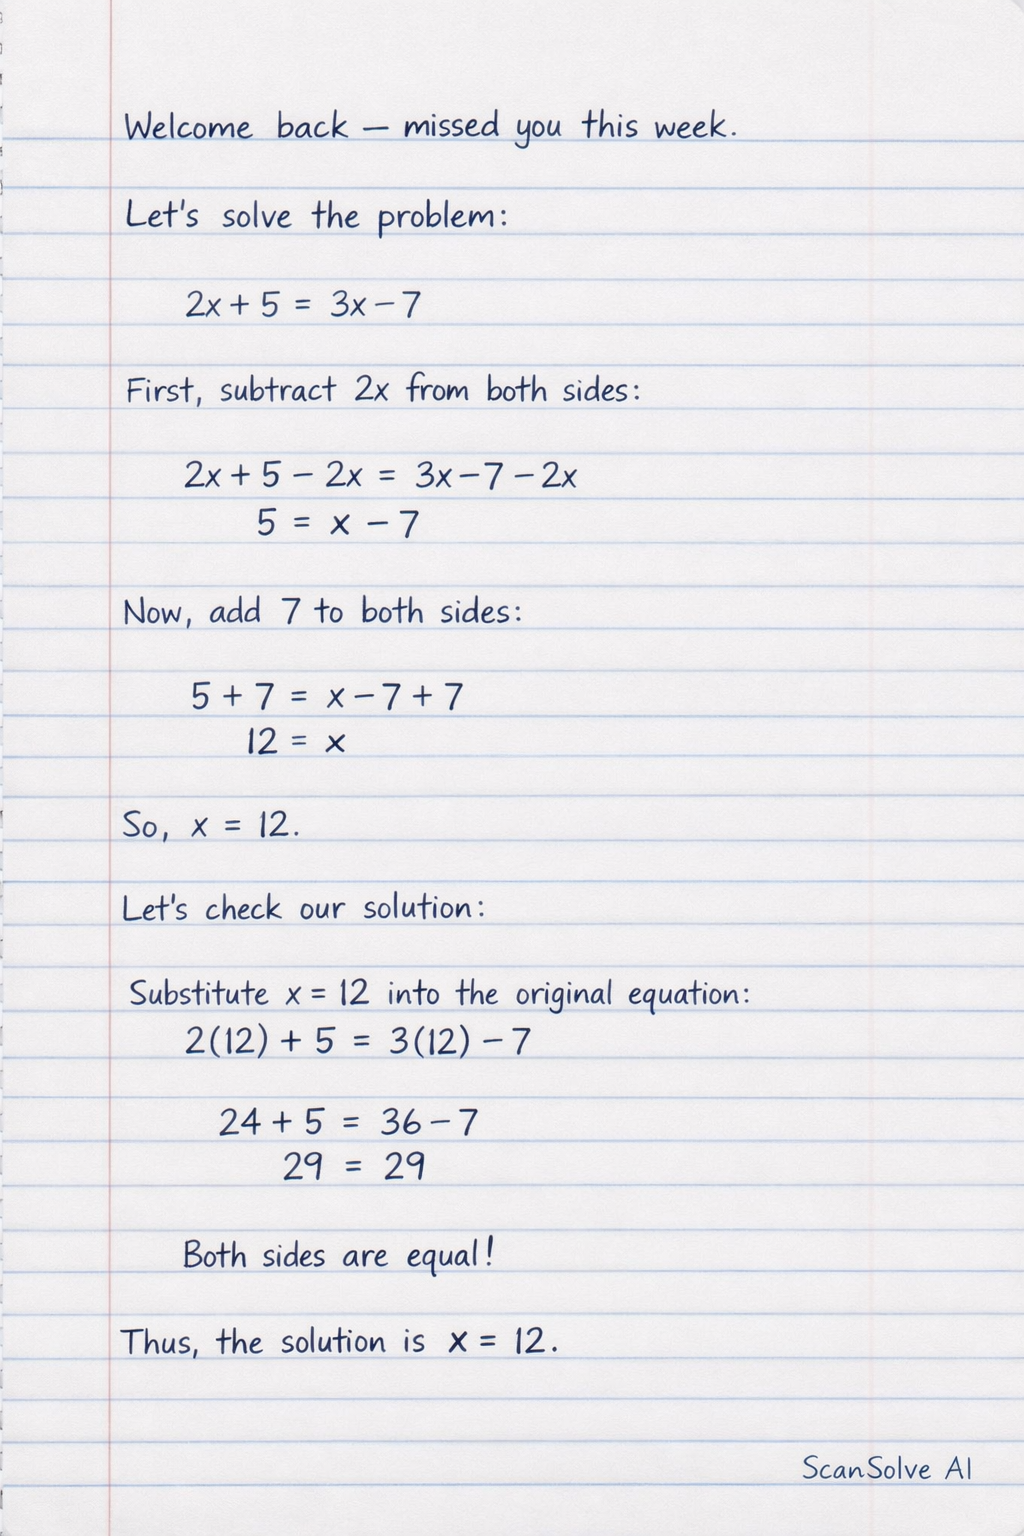 Welcome back — missed you this week.
Let's solve the problem:
2x + 5 = 3x - 7
First, subtract 2x from both sides:
2x + 5 - 2x = 3x - 7 - 2x
5 = x - 7
Now, add 7 to both sides:
5 + 7 = x - 7 + 7
12 = x
So, x = 12.
Let's check our solution:
Substitute x = 12 into the original equation:
2(12) + 5 = 3(12) - 7
24 + 5 = 36 - 7
29 = 29
Both sides are equal!
Thus, the solution is x = 12.
ScanSolve AI